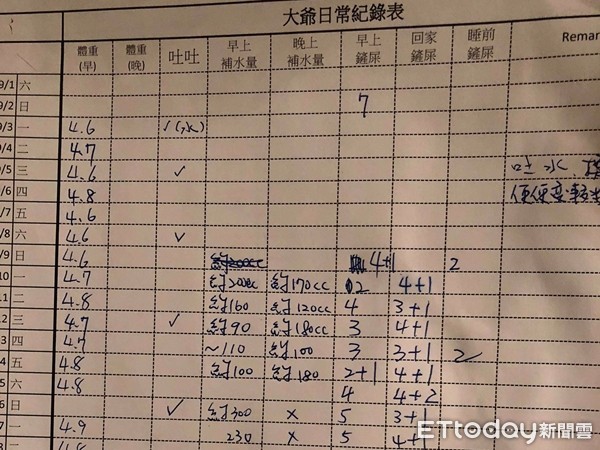 大爺日常紀錄表
體重(早) 體重(晚) 吐吐 早上補水量 晚上補水量 早上鏟屎 回家鏟屎 睡前鏟屎 Remar
9/1 六
9/2 日 7
9/3 一 4.6 ✓(水)
9/4 二 4.7
9/5 三 4.6 ✓ 吐水
9/6 四 4.8 便便變軟
9/7 五 4.6
9/8 六 4.6 ✓
9 日 4.6 4+1 2
10 一 4.7 約200cc 約170cc 2 4+1
11 二 4.8 約160 約120cc 4 3+1
12 三 4.7 ✓ 約90 約180cc 3 4+1
3 四 4.7 ~110 約100 3 3+1 2
4 五 4.8 約100 約180 2+1 4+1
5 六 4.8 4 4+2
6 日 ✓ 約300 x 5 3+1
7 一 4.9 230 x 5 4+1
二 4.8
ETtoday新聞雲